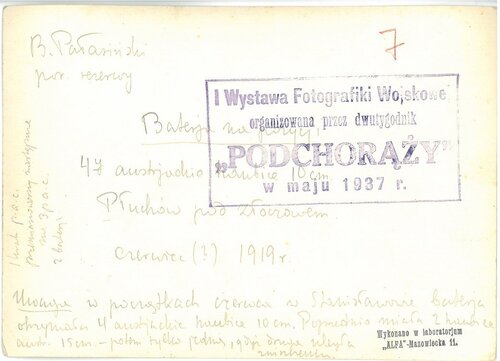 B. Pałasiński
por. rezerwy
7
I Wystawa Fotografiki Wojskowej
organizowana przez dwutygodnik
„PODCHORĄŻY”
w maju 1937 r.
Baterja na pozycji,
47 austrjackie haubice 10 cm.
Płuchów pod Złoczowem
czerwiec (?) 1919 r.
na 3 p.a.c.
2 baterji
Uwaga w początkach czerwca w Stanisławowie baterja
otrzymała 4 austrjackie haubice 10 cm. Poprzednio miała 2 haubice
austr. 15 cm. – potem tylko jedną, gdyż druga uległa
zniszczeniu.
Wykonano w laboratorjum
"ALFA"-Mazowiecka 11.